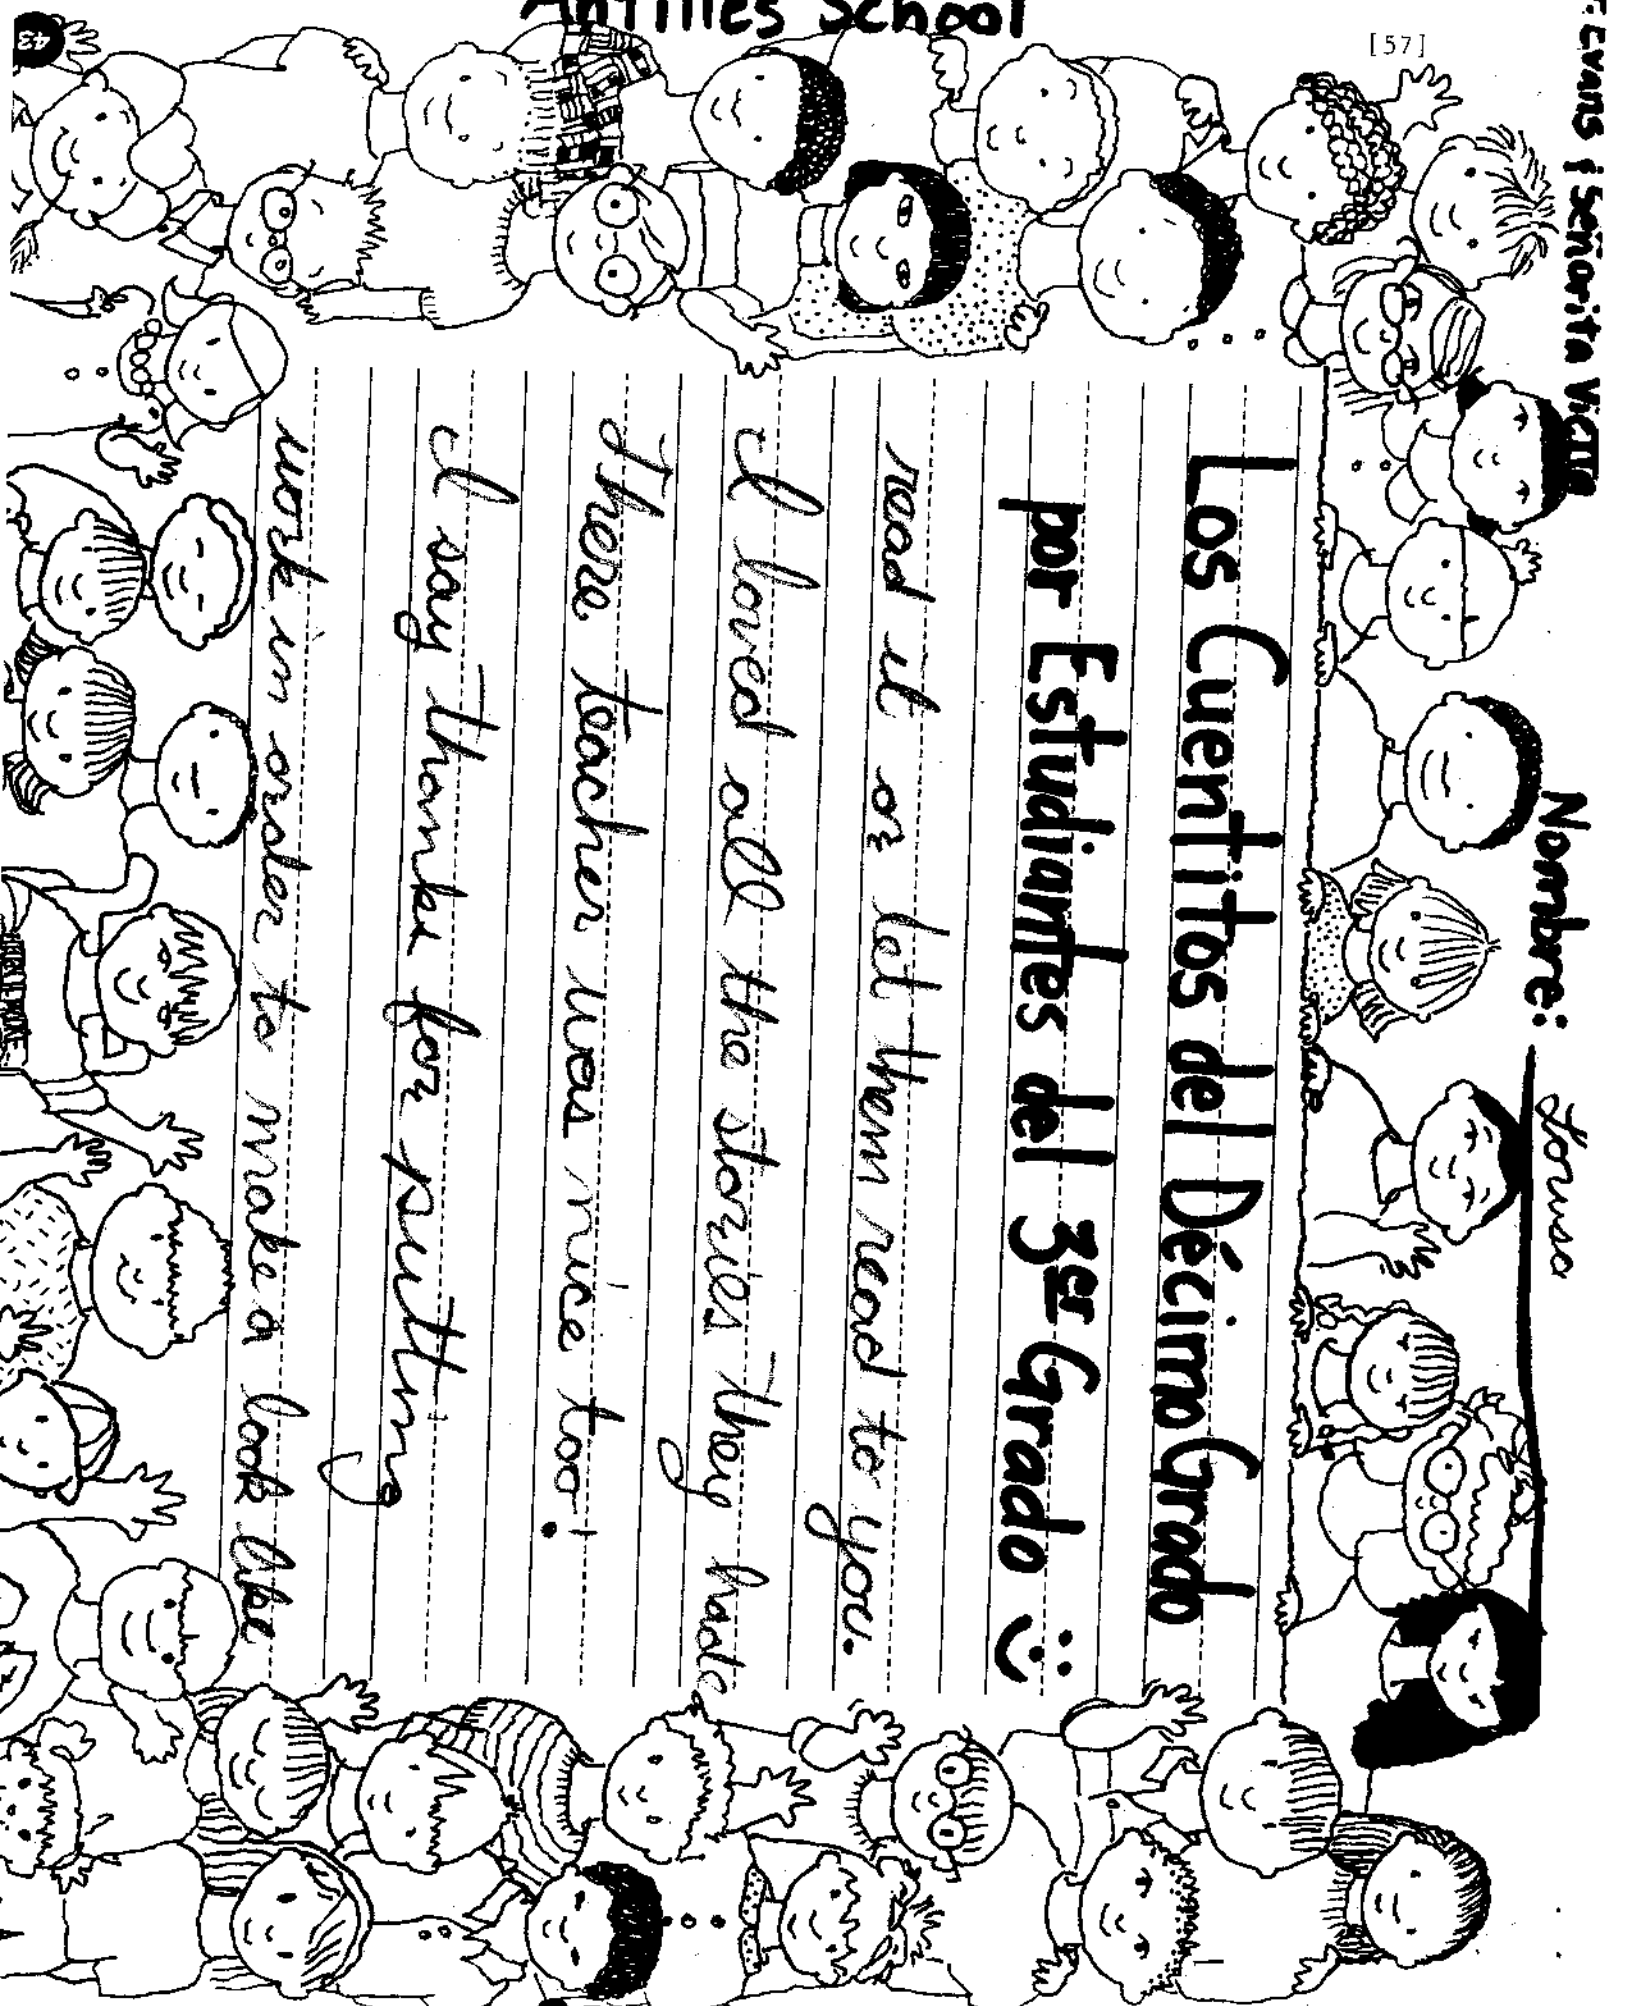 [57]
Antilles School
43
Evans & Señorita
Nombre:
Los Cuentitos del Décimo Grado
por Estudiantes del 3er Grado
read it or let them read to you.
I loved all the stories they had
There teacher was nice too!
I say thanke for putting
work in order to make a book like